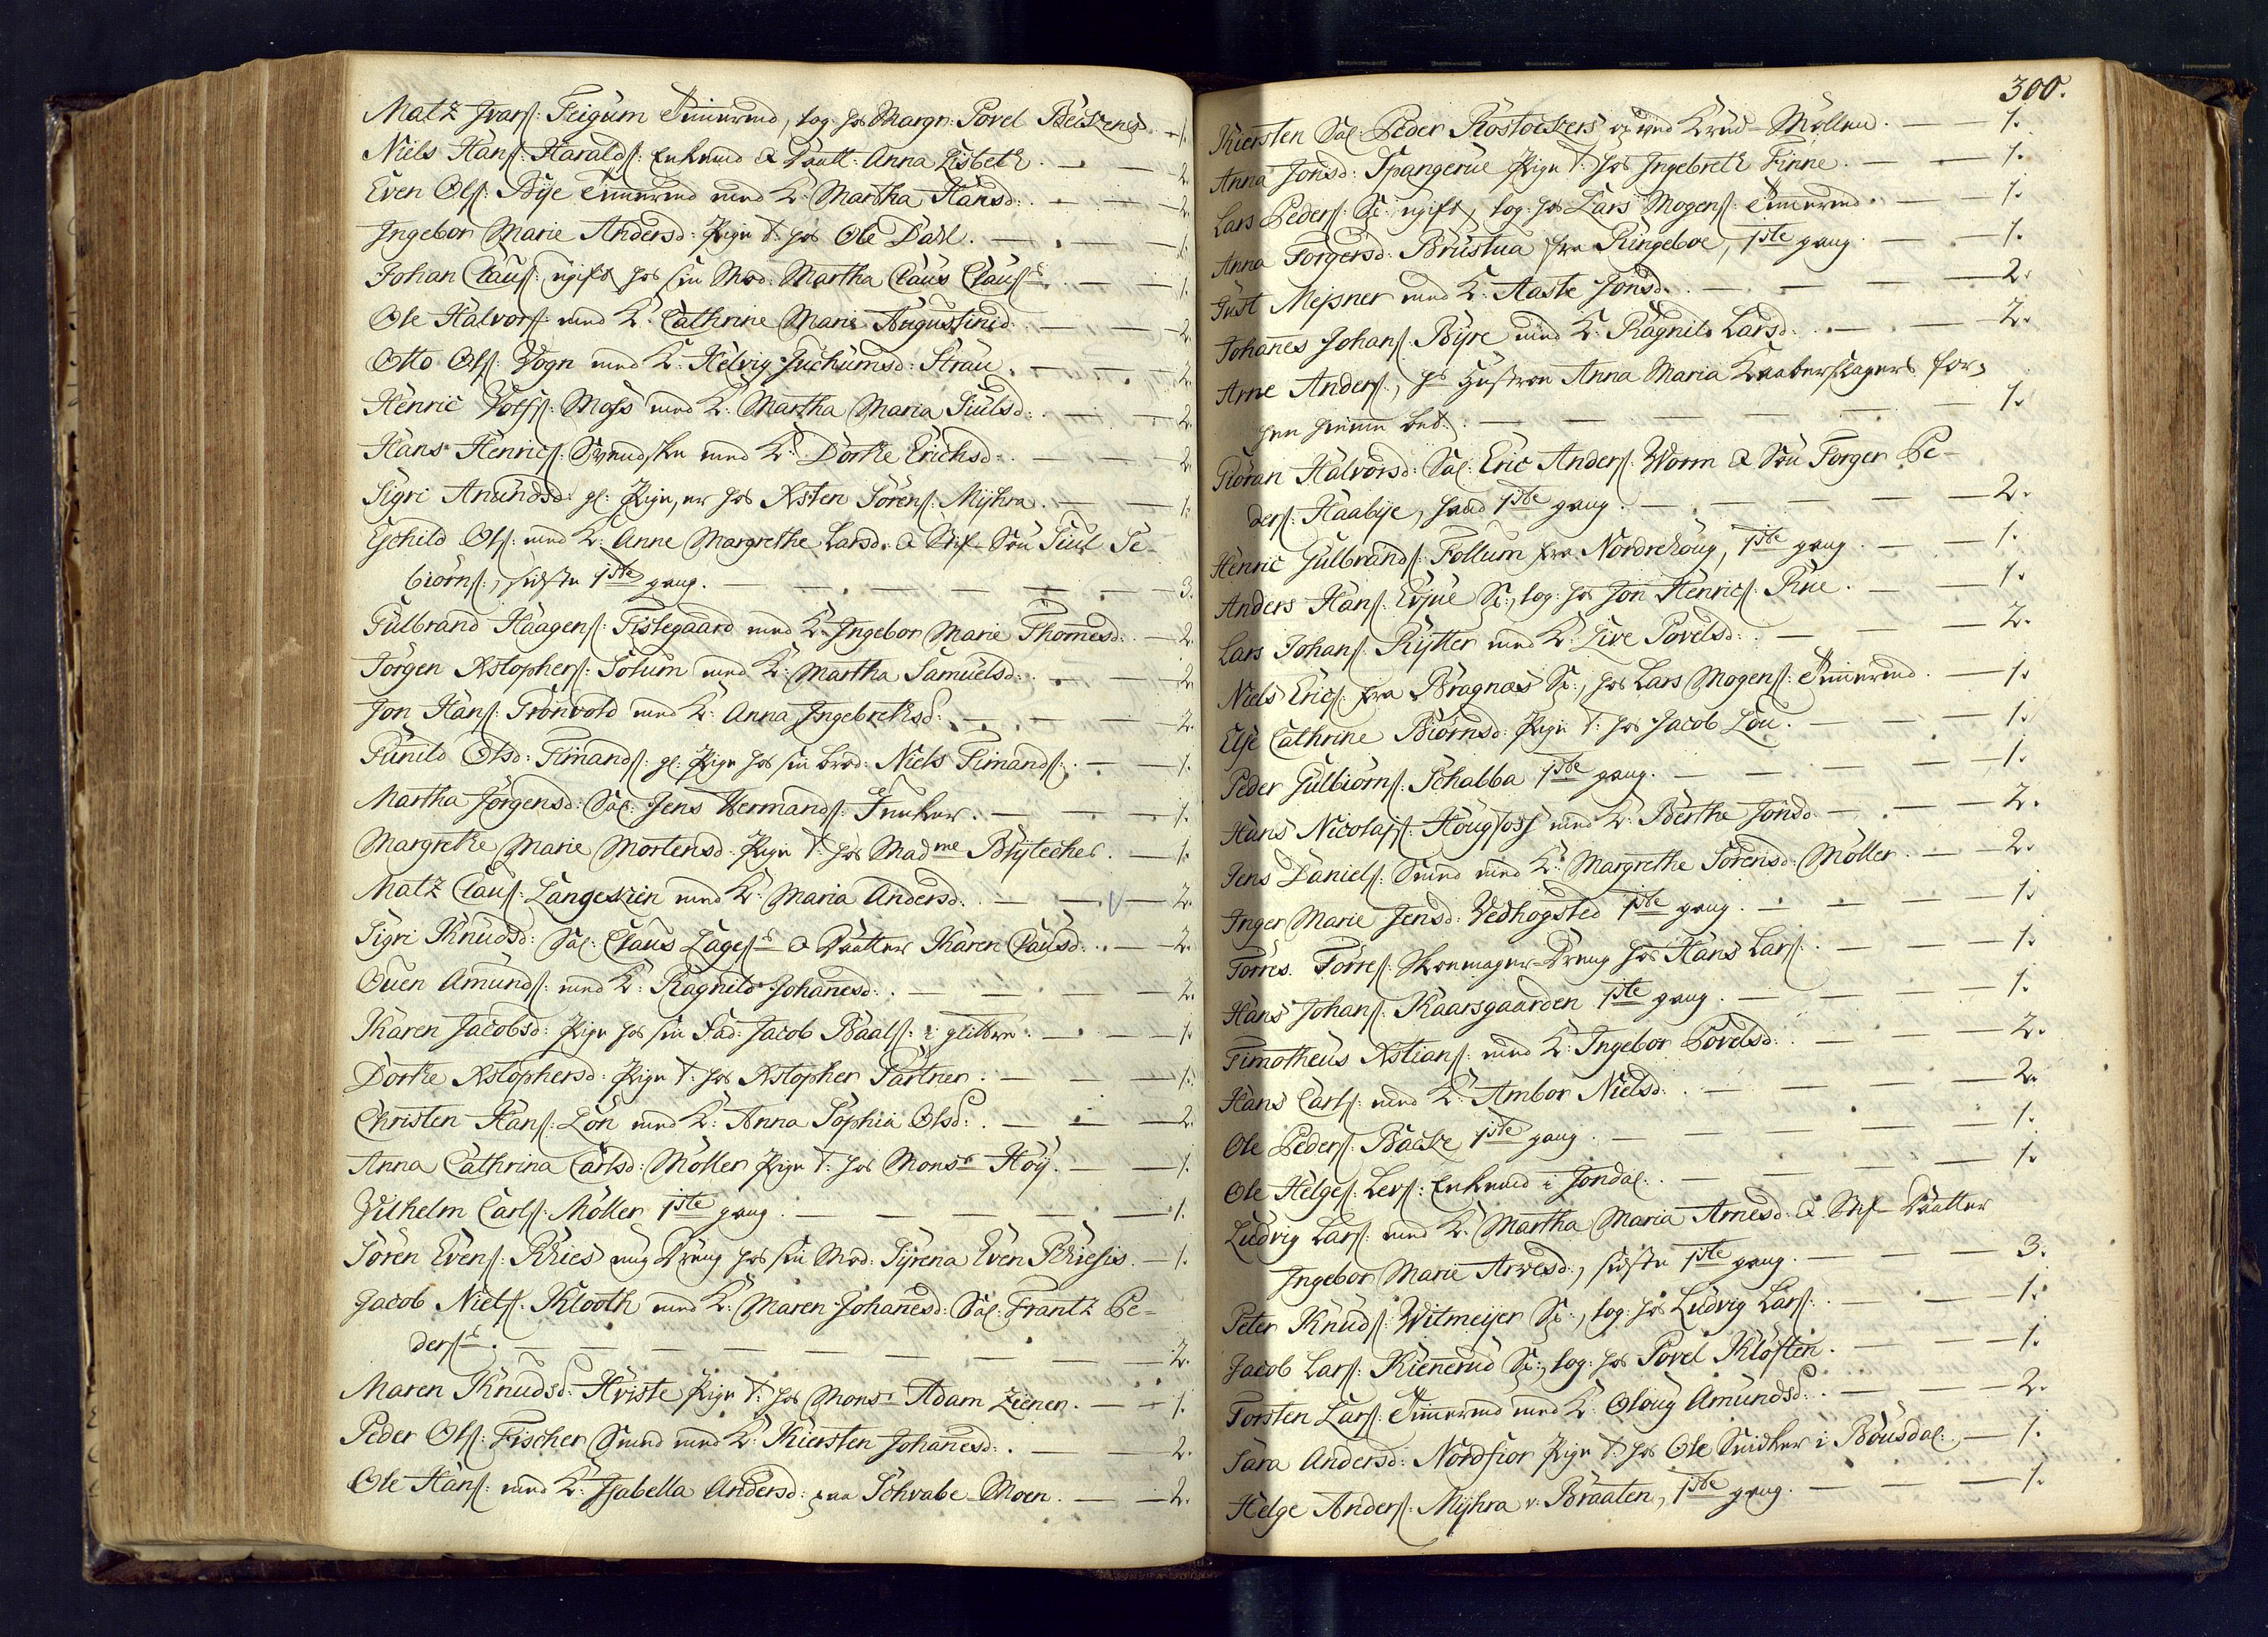 Matz Ivarſ: Feigum Timmermd, log. hos Margr: Povel Beckens. 1.
Niels Hanſ: Haraldſ: Enkemd & Daatt: Anna Lisbeth. 2.
Even Olſ: Bye Timmermd med K: Martha Hansd: 2.
Ingebor Marie Andersd: Pige t: hos Ole Dahl. 1.
Johan Clauſ: ugift hos sin Mod: Martha Claus Clauſ: 1.
Ole Halvorſ: med K: Cathrine Marie Augustinid: 2.
Otto Olſ: Vogn med K: Helvig Juchumsd: Strau. 2.
Henric Volfſ: Moss med K: Martha Maria Juulsd: 2.
Hans Henricſ: Svendske med K: Dorthe Erichsd: 2.
Sigri Anundsd: gl: Pige, er hos Xsten Sörenſ: Myhra. 1.
Eschild Olſ: med K: Anne Margrethe Larsd: & Stif-Sön Juul Te-
biörnſ:, sidste 1ste gang. 3.
Gulbrand Haagenſ: Fistegaard med K: Ingebor Marie Thomesd: 2.
Jörgen Xstopherſ: Solum med K: Martha Samuelsd: 2.
Jon Hanſ: Grönvold med K: Anna Ingebrethsd: 2.
Gunild Olsd: Timandſ: gl: Pige hos sin brod: Niels Timandſ: 1.
Martha Jörgensd: Sal: Jens Hermandſ: Junker. 1.
Margrethe Marie Mortensd: Pige t: hos Madme Blytecher. 1.
Matz Clauſ: Langeskien med K: Maria Andersd: 2.
Sigri Knudsd: Sal: Claus Lageſ: & Daatter Karen Clausd: 2.
Ouen Amundſ: med K: Ragnild Johannesd: 2.
Karen Jacobsd: Pige hos sin Fad: Jacob Baalſ: i glitre. 1.
Dorthe Xstophersd: Pige t: hos Xstopher Partner. 1.
Christen Hanſ: Lön med K: Anna Sophia Olsd: 2.
Anna Cathrina Carlsd: Möller Pige t: hos Monsr Höy. 1.
Vilhelm Carlſ: Möller 1ste gang. 1.
Sören Evenſ: Kries ung Dreng hos sin Mod: Syrena Even Kriesis. 1.
Jacob Nielſ: Klooth med K: Maren Johannesd: Sal: Frantz Pe-
derſ: 2.
Maren Knudsd: Hviste Pige t: hos Monsr Adam Zienen. 1.
Peder Olſ: Fischer Smed med K: Kiersten Johannesd: 2.
Ole Hanſ: med K: Isabella Andersd: paa Schvabe-Moen. 2.
300.
Kiersten Sal: Peder Rostockers ved Krud-Möllen. 1.
Anna Jonsd: Spangerue Pige t: hos Ingebreth Finne. 1.
Lars Pederſ: Sc: ugift, log: hos Lars Mogenſ: Timmermd. 1.
Anna Torgersd: Brustua fra Ringeboe, 1ste gang. 1.
Just Mejsner med K: Aaste Jonsd: 2.
Johannes Johanſ: Byre med K: Ragnild Larsd: 2.
Arne Anderſ:, hs Hustroe Anna Maria Kaaberslagers for-
hen hiemme bet: 1.
Giöran Halvorsd: Sal: Eric Anderſ: Worm & Sön Torger Pe-
derſ: Haabye, hand 1ste gang. 2.
Henric Gulbrandſ: Follum fra Nordrehoug, 1ste gang. 1.
Anders Hanſ: Evjue Sc:, log: hos Jon Henricſ: Rue. 1.
Lars Johanſ: Rytter med K: Live Povelsd: 2.
Niels Ericſ: fra Bragnæs Sc:, hos Lars Mogenſ: Timmermd. 1.
Else Cathrine Biörnsd: Pige t: hos Jacob Lou. 1.
Peder Gulbiörnſ: Schabba 1ste gang. 1.
Hans Nicolajſ: Hougfoss med K: Berthe Jonsd: 2.
Jens Danielſ: Smed med K: Margrethe Sörensd: Möller. 2.
Inger Marie Jensd: Vedhogsted 1ste gang. 1.
Torres Torreſ: Skoemager-Dreng hos Hans Larſ: 1.
Hans Johanſ: Kaarsgaarden 1ste gang. 1.
Timotheus Xstianſ: med K: Ingebor Povelsd: 2.
Hans Carlſ: med K: Ambor Nielsd: 2.
Ole Pederſ: Backe 1ste gang. 1.
Ole Helgeſ: Lerſ: Enkemd i Jondal: 1.
Ludvig Larſ: med K: Martha Maria Arnesd: & Stif-Daatter
Ingebor Marie Arvesd:, sidste 1ste gang. 3.
Peter Knudſ: Witmeyer Sc:, log: hos Ludvig Larſ: 1.
Jacob Larſ: Kienerud Sc:, log: hos Povel Klöften. 1.
Torsten Larſ: Timmermd med K: Oloug Amundsd: 2.
Sara Andersd: Nordfior Pige t: hos Ole Snidker i Bousdal: 1.
Helge Anderſ: Myhra v: Braaten, 1ste gang. 1.